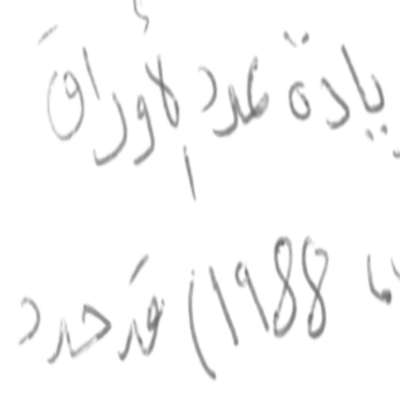 يادة عدد لأوراق
1988) قد حدد